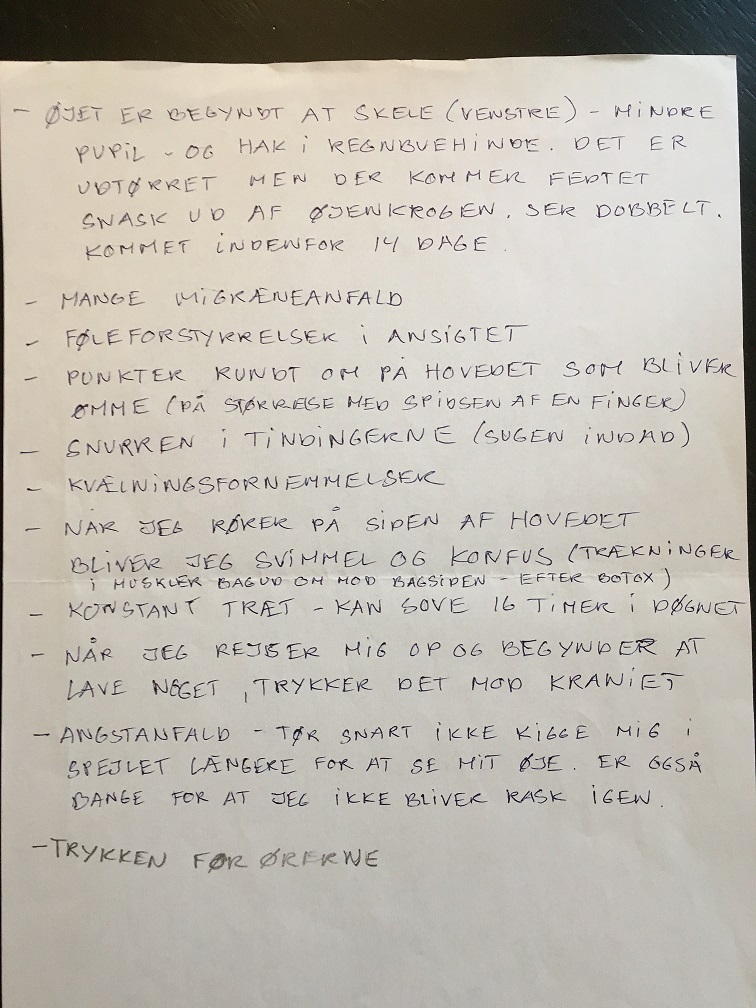 - ØJET ER BEGYNDT AT SKELE (VENSTRE) - MINDRE
PUPIL - OG HAK I REGNBUEHINDE. DET ER
UDTØRRET MEN DER KOMMER FEDTET
SNASK UD AF ØJENKROGEN. SER DOBBELT.
KOMMET INDENFOR 14 DAGE.
- MANGE MIGRÆNEANFALD
- FØLEFORSTYRRELSER I ANSIGTET
- PUNKTER RUNDT OM PÅ HOVEDET SOM BLIVER
ØMME (PÅ STØRRELSE MED SPIDSEN AF EN FINGER)
- SNURREN I TINDINGERNE (SUGEN INDAD)
- KVÆLNINGSFORNEMMELSER
- NÅR JEG RØRER PÅ SIDEN AF HOVEDET
BLIVER JEG SVIMMEL OG KONFUS (TRÆKNINGER
I MUSKLER BAGUD OM MOD BAGSIDEN - EFTER BOTOX)
- KONSTANT TRÆT - KAN SOVE 16 TIMER I DØGNET
- NÅR JEG REJSER MIG OP OG BEGYNDER AT
LAVE NOGET, TRYKKER DET MOD KRANIET
- ANGSTANFALD - TØR SNART IKKE KIGGE MIG I
SPEJLET LÆNGERE FOR AT SE MIT ØJE. ER OGSÅ
BANGE FOR AT JEG IKKE BLIVER RASK IGEN.
- TRYKKEN FOR ØRERNE